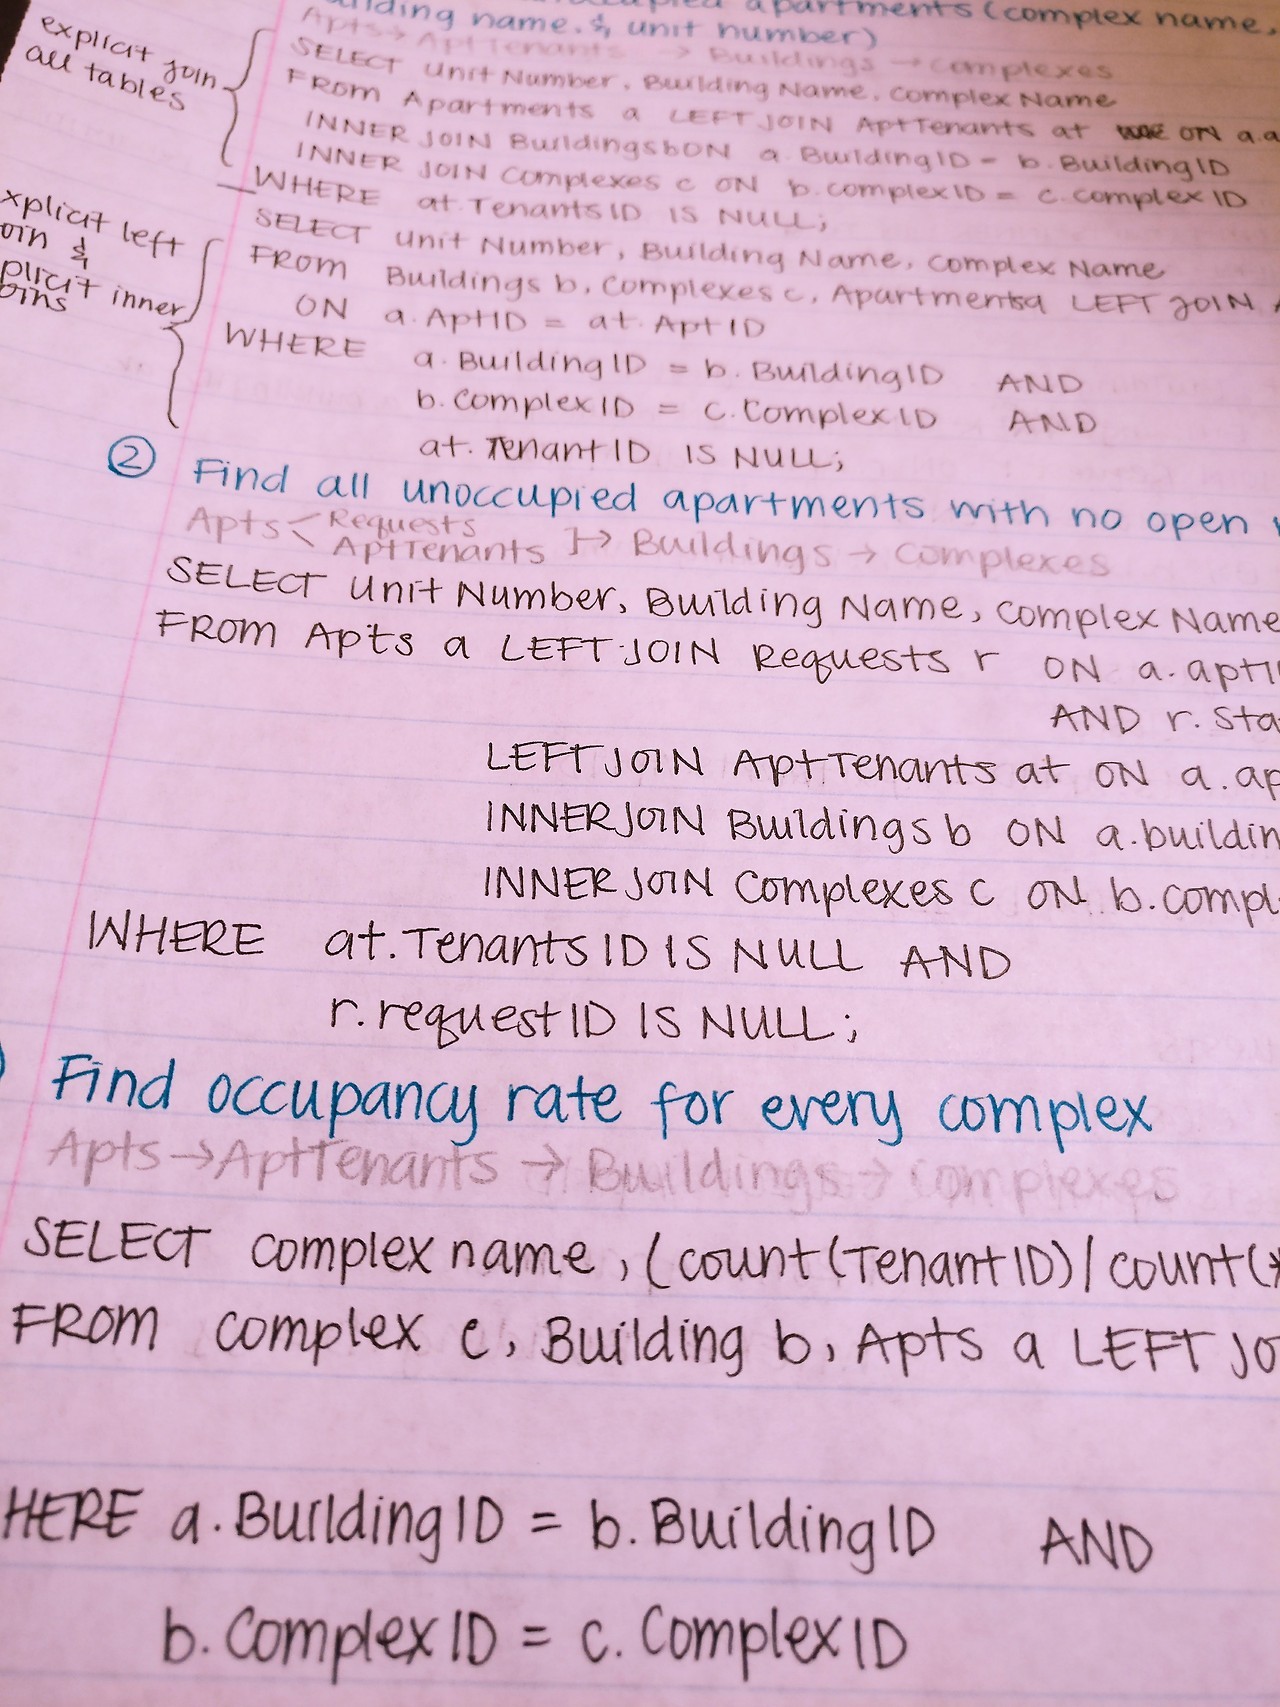 apartments (complex name,
building name, & unit number)
Apts → AptTenants → Buildings → Complexes
explicit join
all tables
SELECT Unit Number, Building Name, Complex Name
FROM Apartments a LEFT JOIN AptTenants at ON a.a
INNER JOIN Buildings b ON a.BuildingID = b.BuildingID
INNER JOIN Complexes c ON b.complexID = c.complexID
WHERE at.TenantsID IS NULL;
xplicit left
oin &
plicit inner
oins
SELECT Unit Number, Building Name, Complex Name
FROM Buildings b, Complexes c, Apartments a LEFT JOIN A
ON a.AptID = at.AptID
WHERE a.BuildingID = b.BuildingID AND
b.ComplexID = c.ComplexID AND
at.TenantID IS NULL;
② Find all unoccupied apartments with no open
Apts < Requests
AptTenants ]→ Buildings → Complexes
SELECT Unit Number, Building Name, Complex Name
FROM Apts a LEFT JOIN Requests r ON a.aptI
AND r.Sta
LEFT JOIN AptTenants at ON a.ap
INNER JOIN Buildings b ON a.buildin
INNER JOIN Complexes c ON b.compl
WHERE at.TenantsID IS NULL AND
r.requestID IS NULL;
Find occupancy rate for every complex
Apts → AptTenants → Buildings → Complexes
SELECT complex name, (count(TenantID)/count(*
FROM complex c, Building b, Apts a LEFT JO
HERE a.BuildingID = b.BuildingID AND
b.ComplexID = c.ComplexID